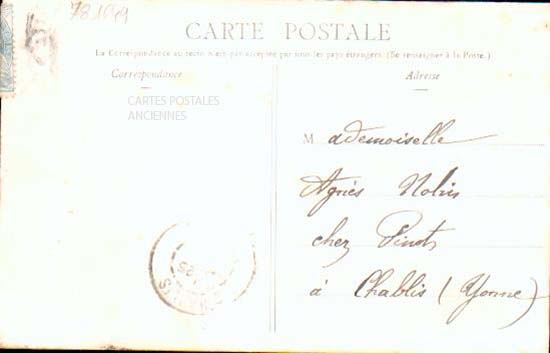 781649
CARTE POSTALE
La Correspondance au recto n'est pas acceptée par tous les pays étrangers. (Se renseigner à la Poste.)
Correspondance
Adresse
CARTES POSTALES
ANCIENNES
Mademoiselle
Agnès
chez Pinot
à Chablis (Yonne)